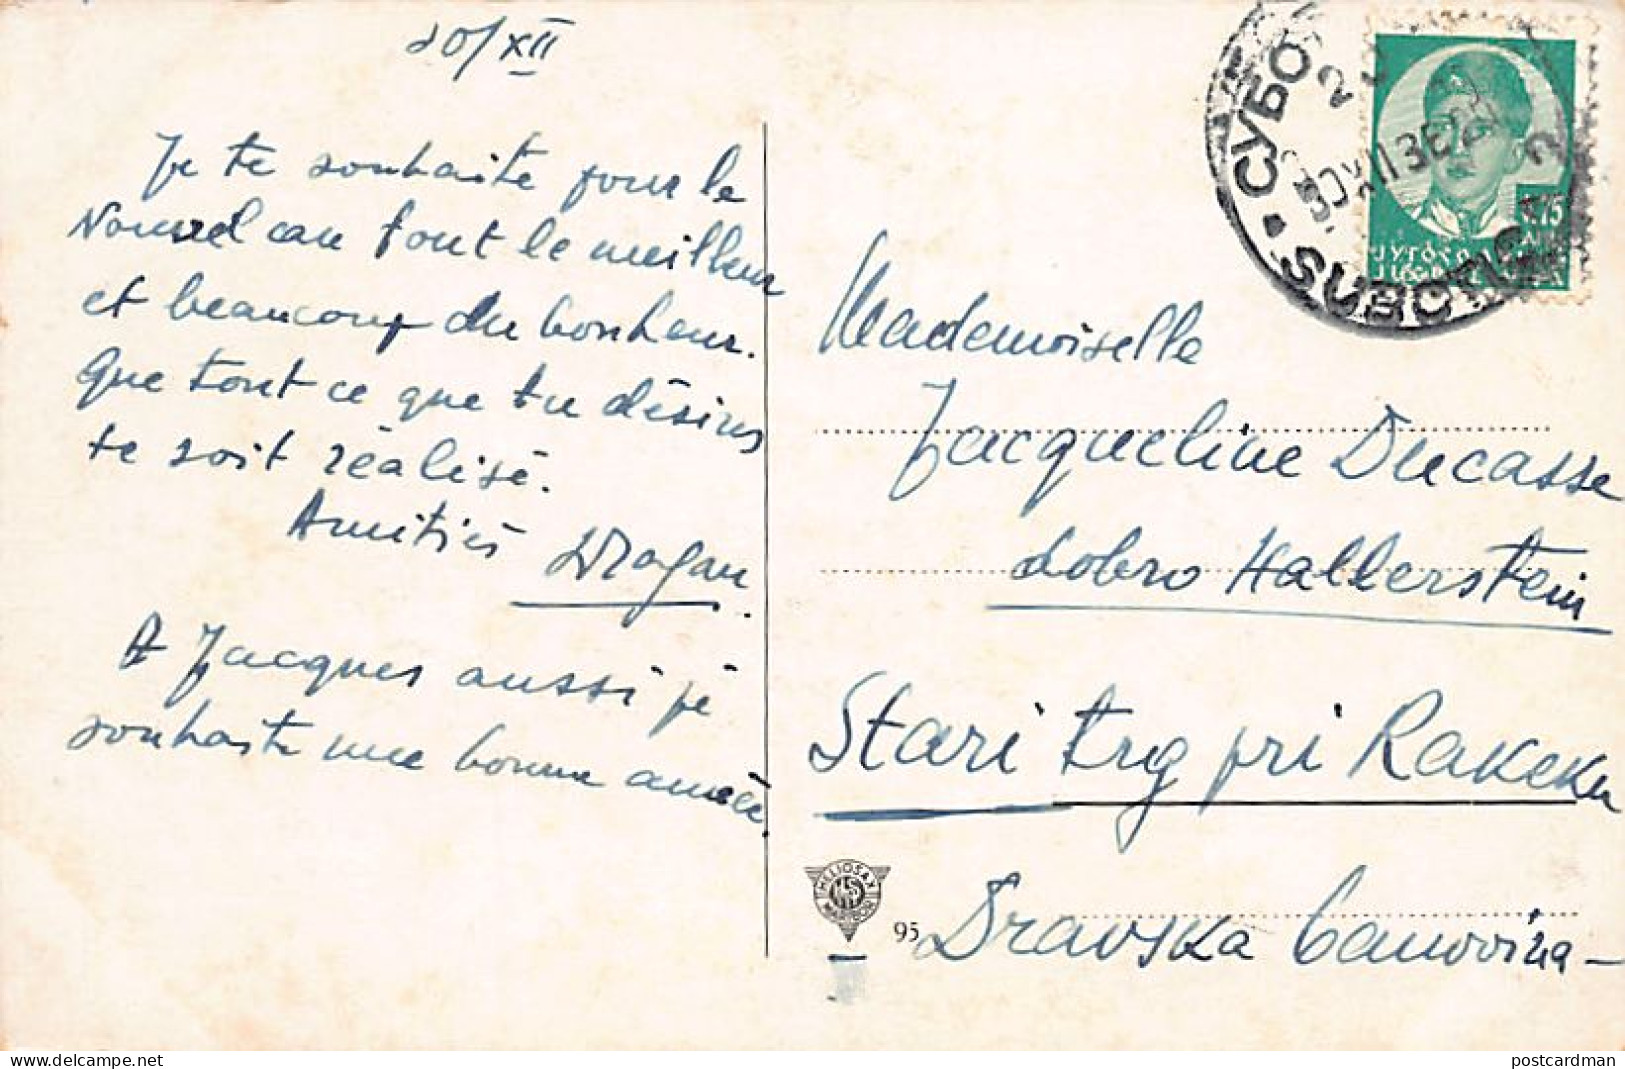 20/XII
Je te souhaite pour le
Nouvel an tout le meilleur
et beaucoup du bonheur.
Que tout ce que tu désires
te soit réalisé.
Amitiés Dragan
A Jacques aussi je
souhaite une bonne année.
СУБО
SUBOTICA
75
ЈУГОСЛА
Mademoiselle
Jacqueline Ducasse
dobro Hallerstein
Stari trg pri Rakeku
Dravska banovina
HELIOSAX
MARIBOR
95
delcampe.net
postcardman